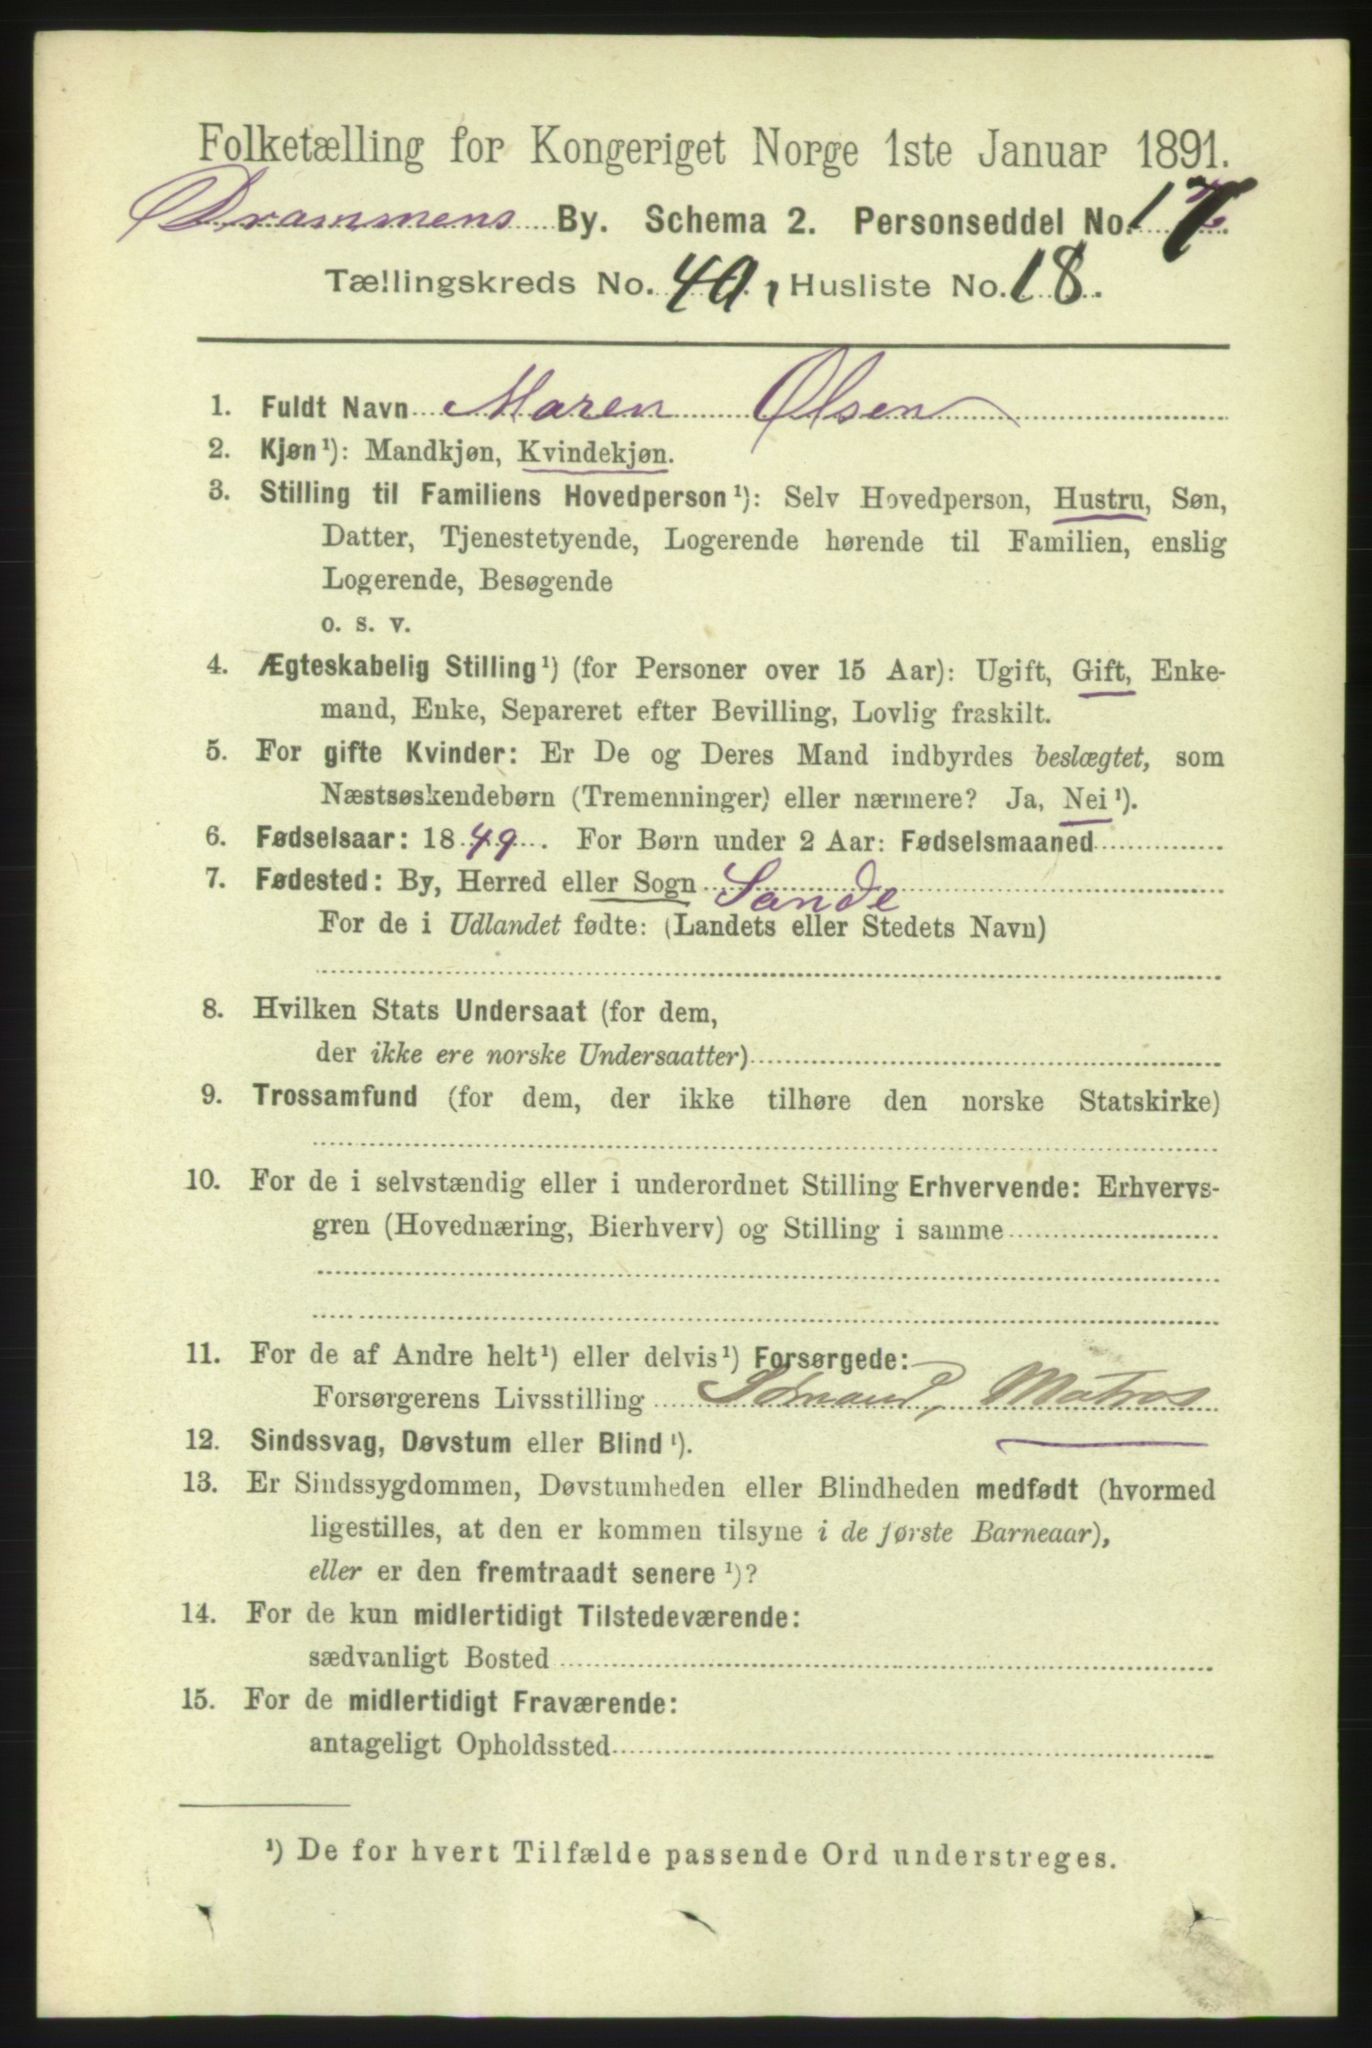 Folketælling for Kongeriget Norge 1ste Januar 1891.
Drammens By. Schema 2. Personseddel No. 17.
Tællingskreds No. 40, Husliste No. 18.
1. Fuldt Navn Maren Olsen
2. Kjøn¹): Mandkjøn, Kvindekjøn.
3. Stilling til Familiens Hovedperson¹): Selv Hovedperson, Hustru, Søn,
Datter, Tjenestetyende, Logerende hørende til Familien, enslig
Logerende, Besøgende
o. s. v.
4. Ægteskabelig Stilling¹) (for Personer over 15 Aar): Ugift, Gift, Enke-
mand, Enke, Separeret efter Bevilling, Lovlig fraskilt.
5. For gifte Kvinder: Er De og Deres Mand indbyrdes beslægtet, som
Næstsøskendebørn (Tremenninger) eller nærmere? Ja, Nei¹).
6. Fødselsaar: 1849. For Børn under 2 Aar: Fødselsmaaned
7. Fødested: By, Herred eller Sogn Sande
For de i Udlandet fødte: (Landets eller Stedets Navn)
8. Hvilken Stats Undersaat (for dem,
der ikke ere norske Undersaatter)
9. Trossamfund (for dem, der ikke tilhøre den norske Statskirke)
10. For de i selvstændig eller i underordnet Stilling Erhvervende: Erhvervs-
gren (Hovednæring, Bierhverv) og Stilling i samme
11. For de af Andre helt¹) eller delvis¹) Forsørgede:
Forsørgerens Livsstilling Sømand, Matros
12. Sindssvag, Døvstum eller Blind¹).
13. Er Sindssygdommen, Døvstumheden eller Blindheden medfødt (hvormed
ligestilles, at den er kommen tilsyne i de første Barneaar),
eller er den fremtraadt senere¹)?
14. For de kun midlertidigt Tilstedeværende:
sædvanligt Bosted
15. For de midlertidigt Fraværende:
antageligt Opholdssted
¹) De for hvert Tilfælde passende Ord understreges.